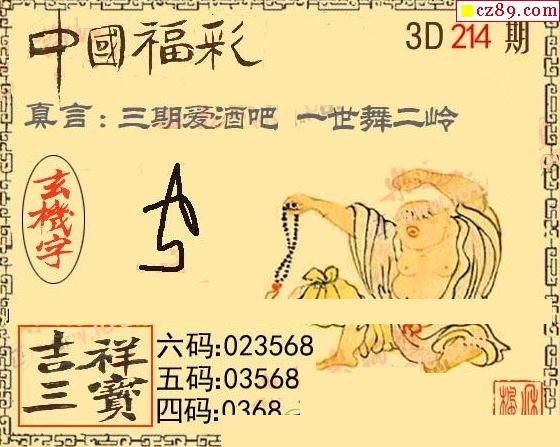 cz89.com
中國福彩
3D 214 期
真言：三期爱酒吧 一世舞二岭
玄機字
吉祥三寶
六码:023568
五码:03568
四码:0368